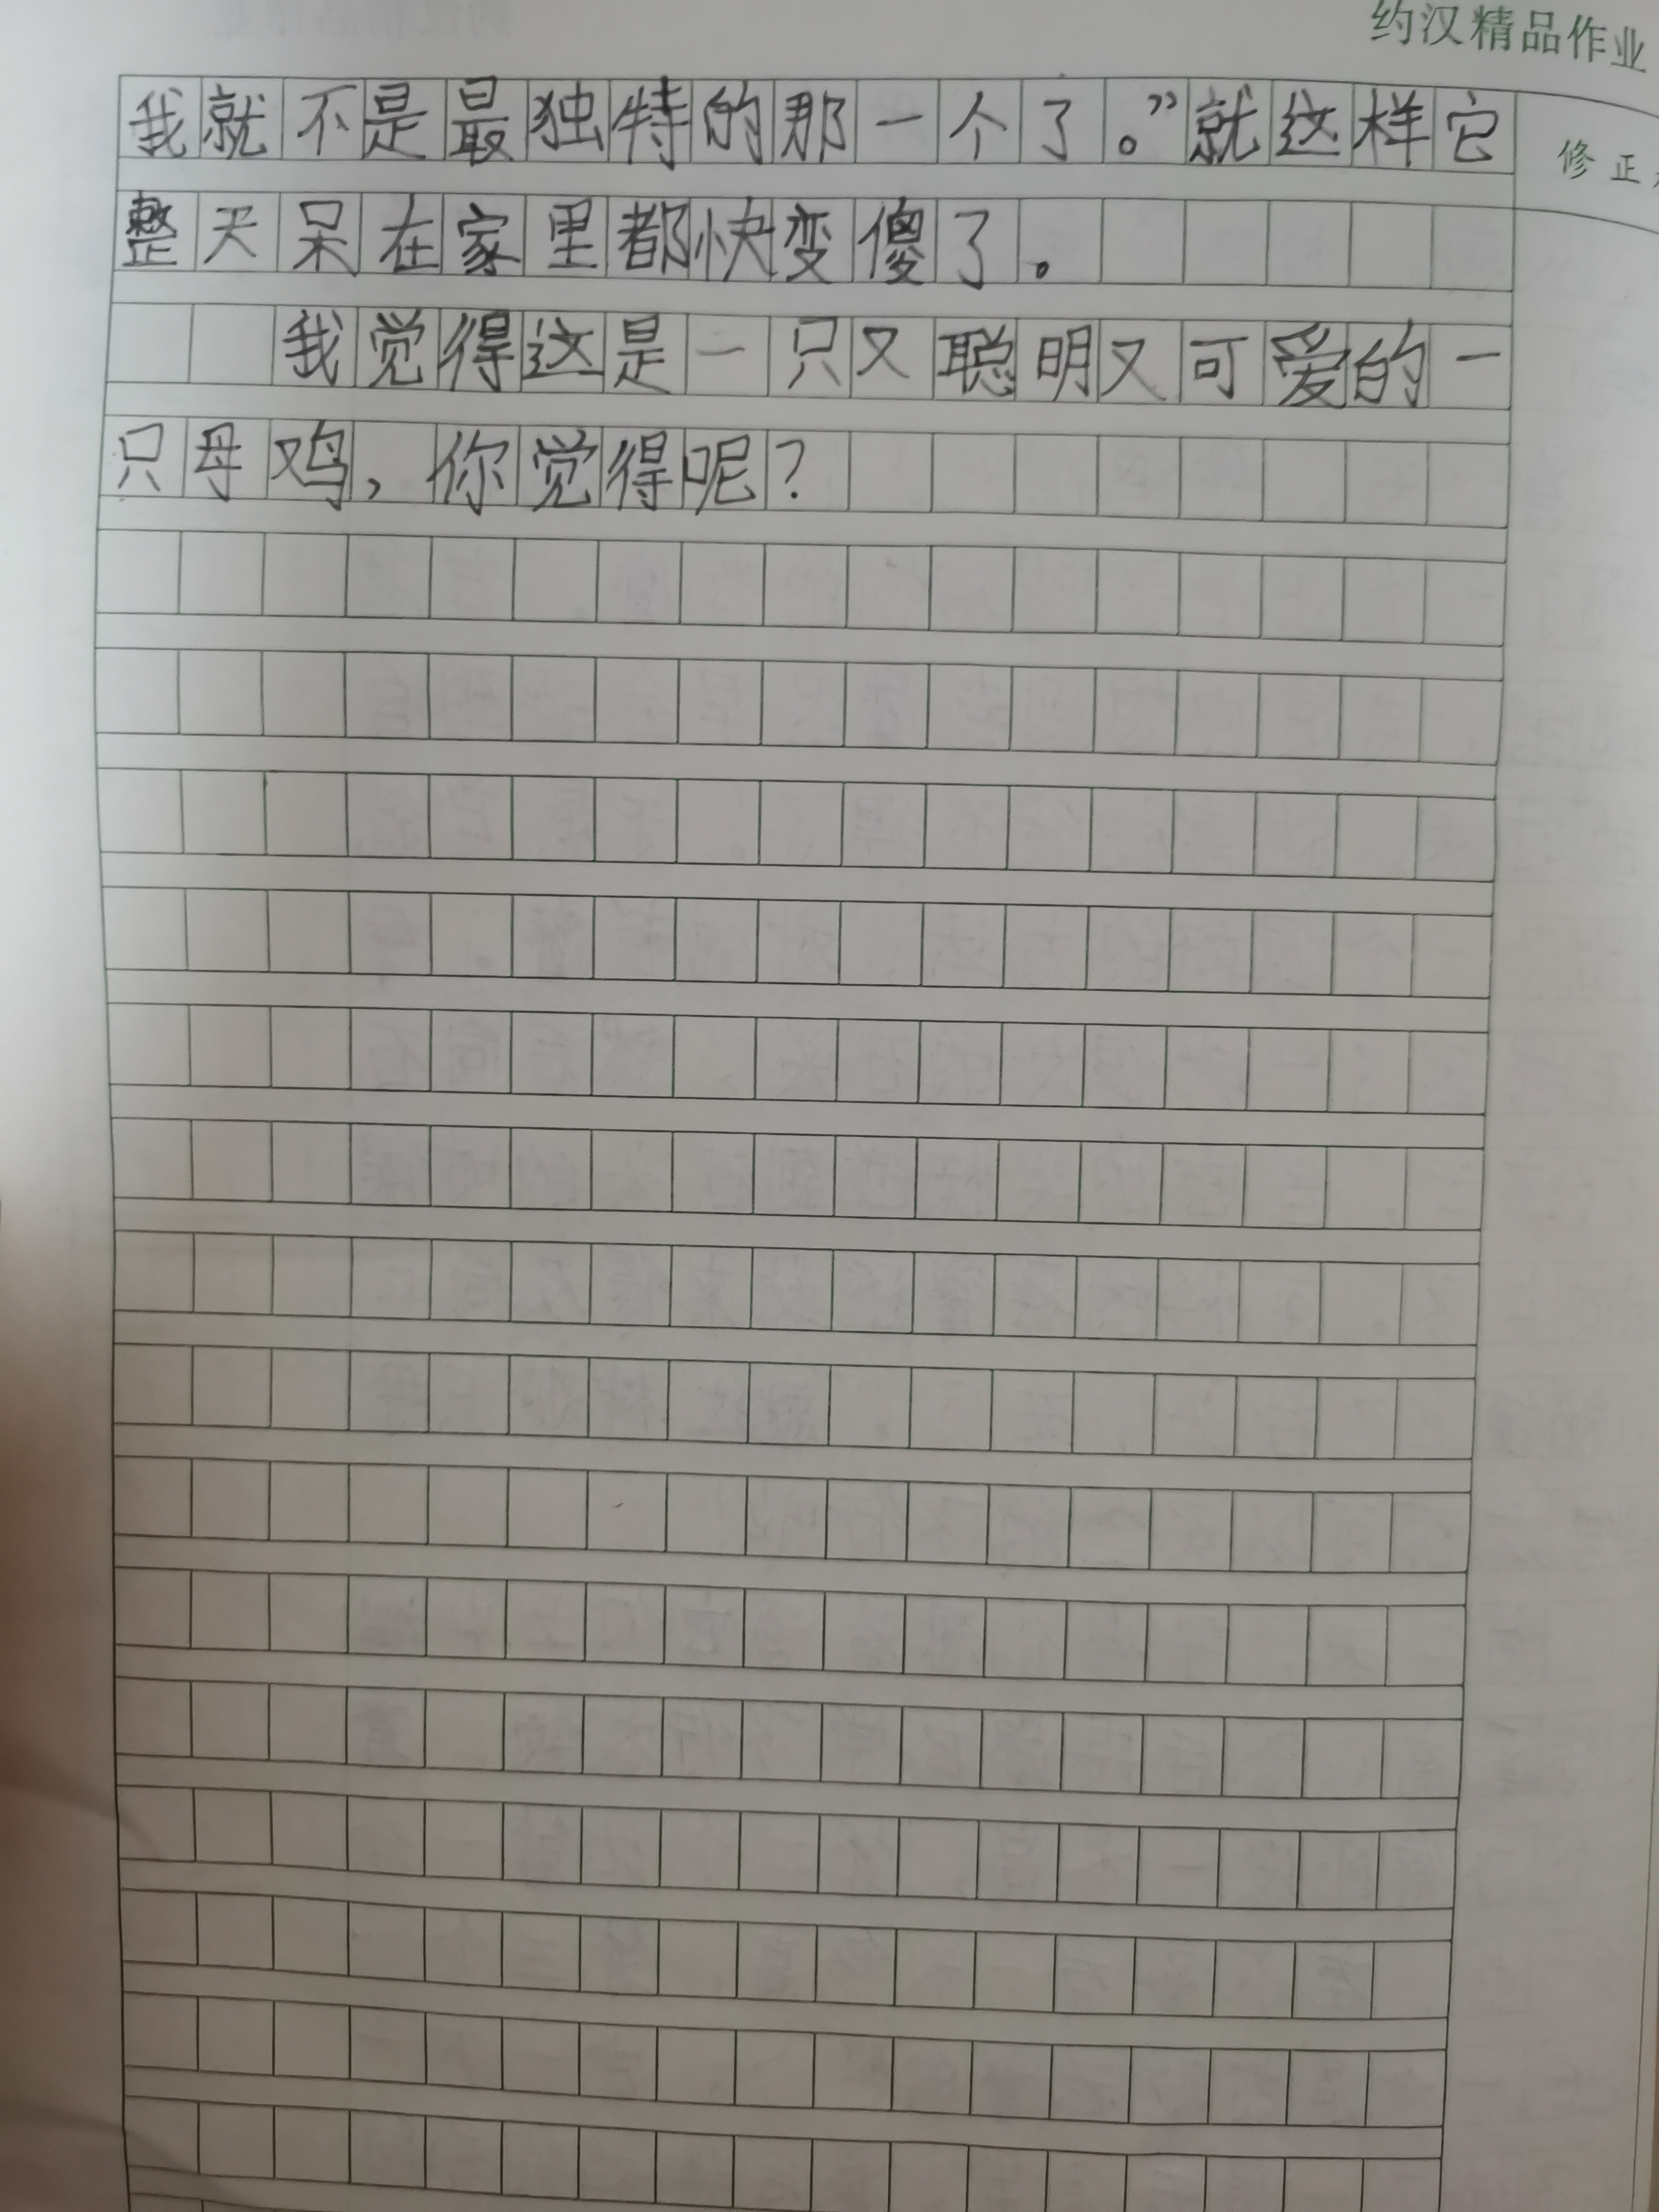 约汉精品作业
我就不是最独特的那一个了。”就这样它
修正
整天呆在家里都快变傻了。
我觉得这是一只又聪明又可爱的一
只母鸡，你觉得呢？